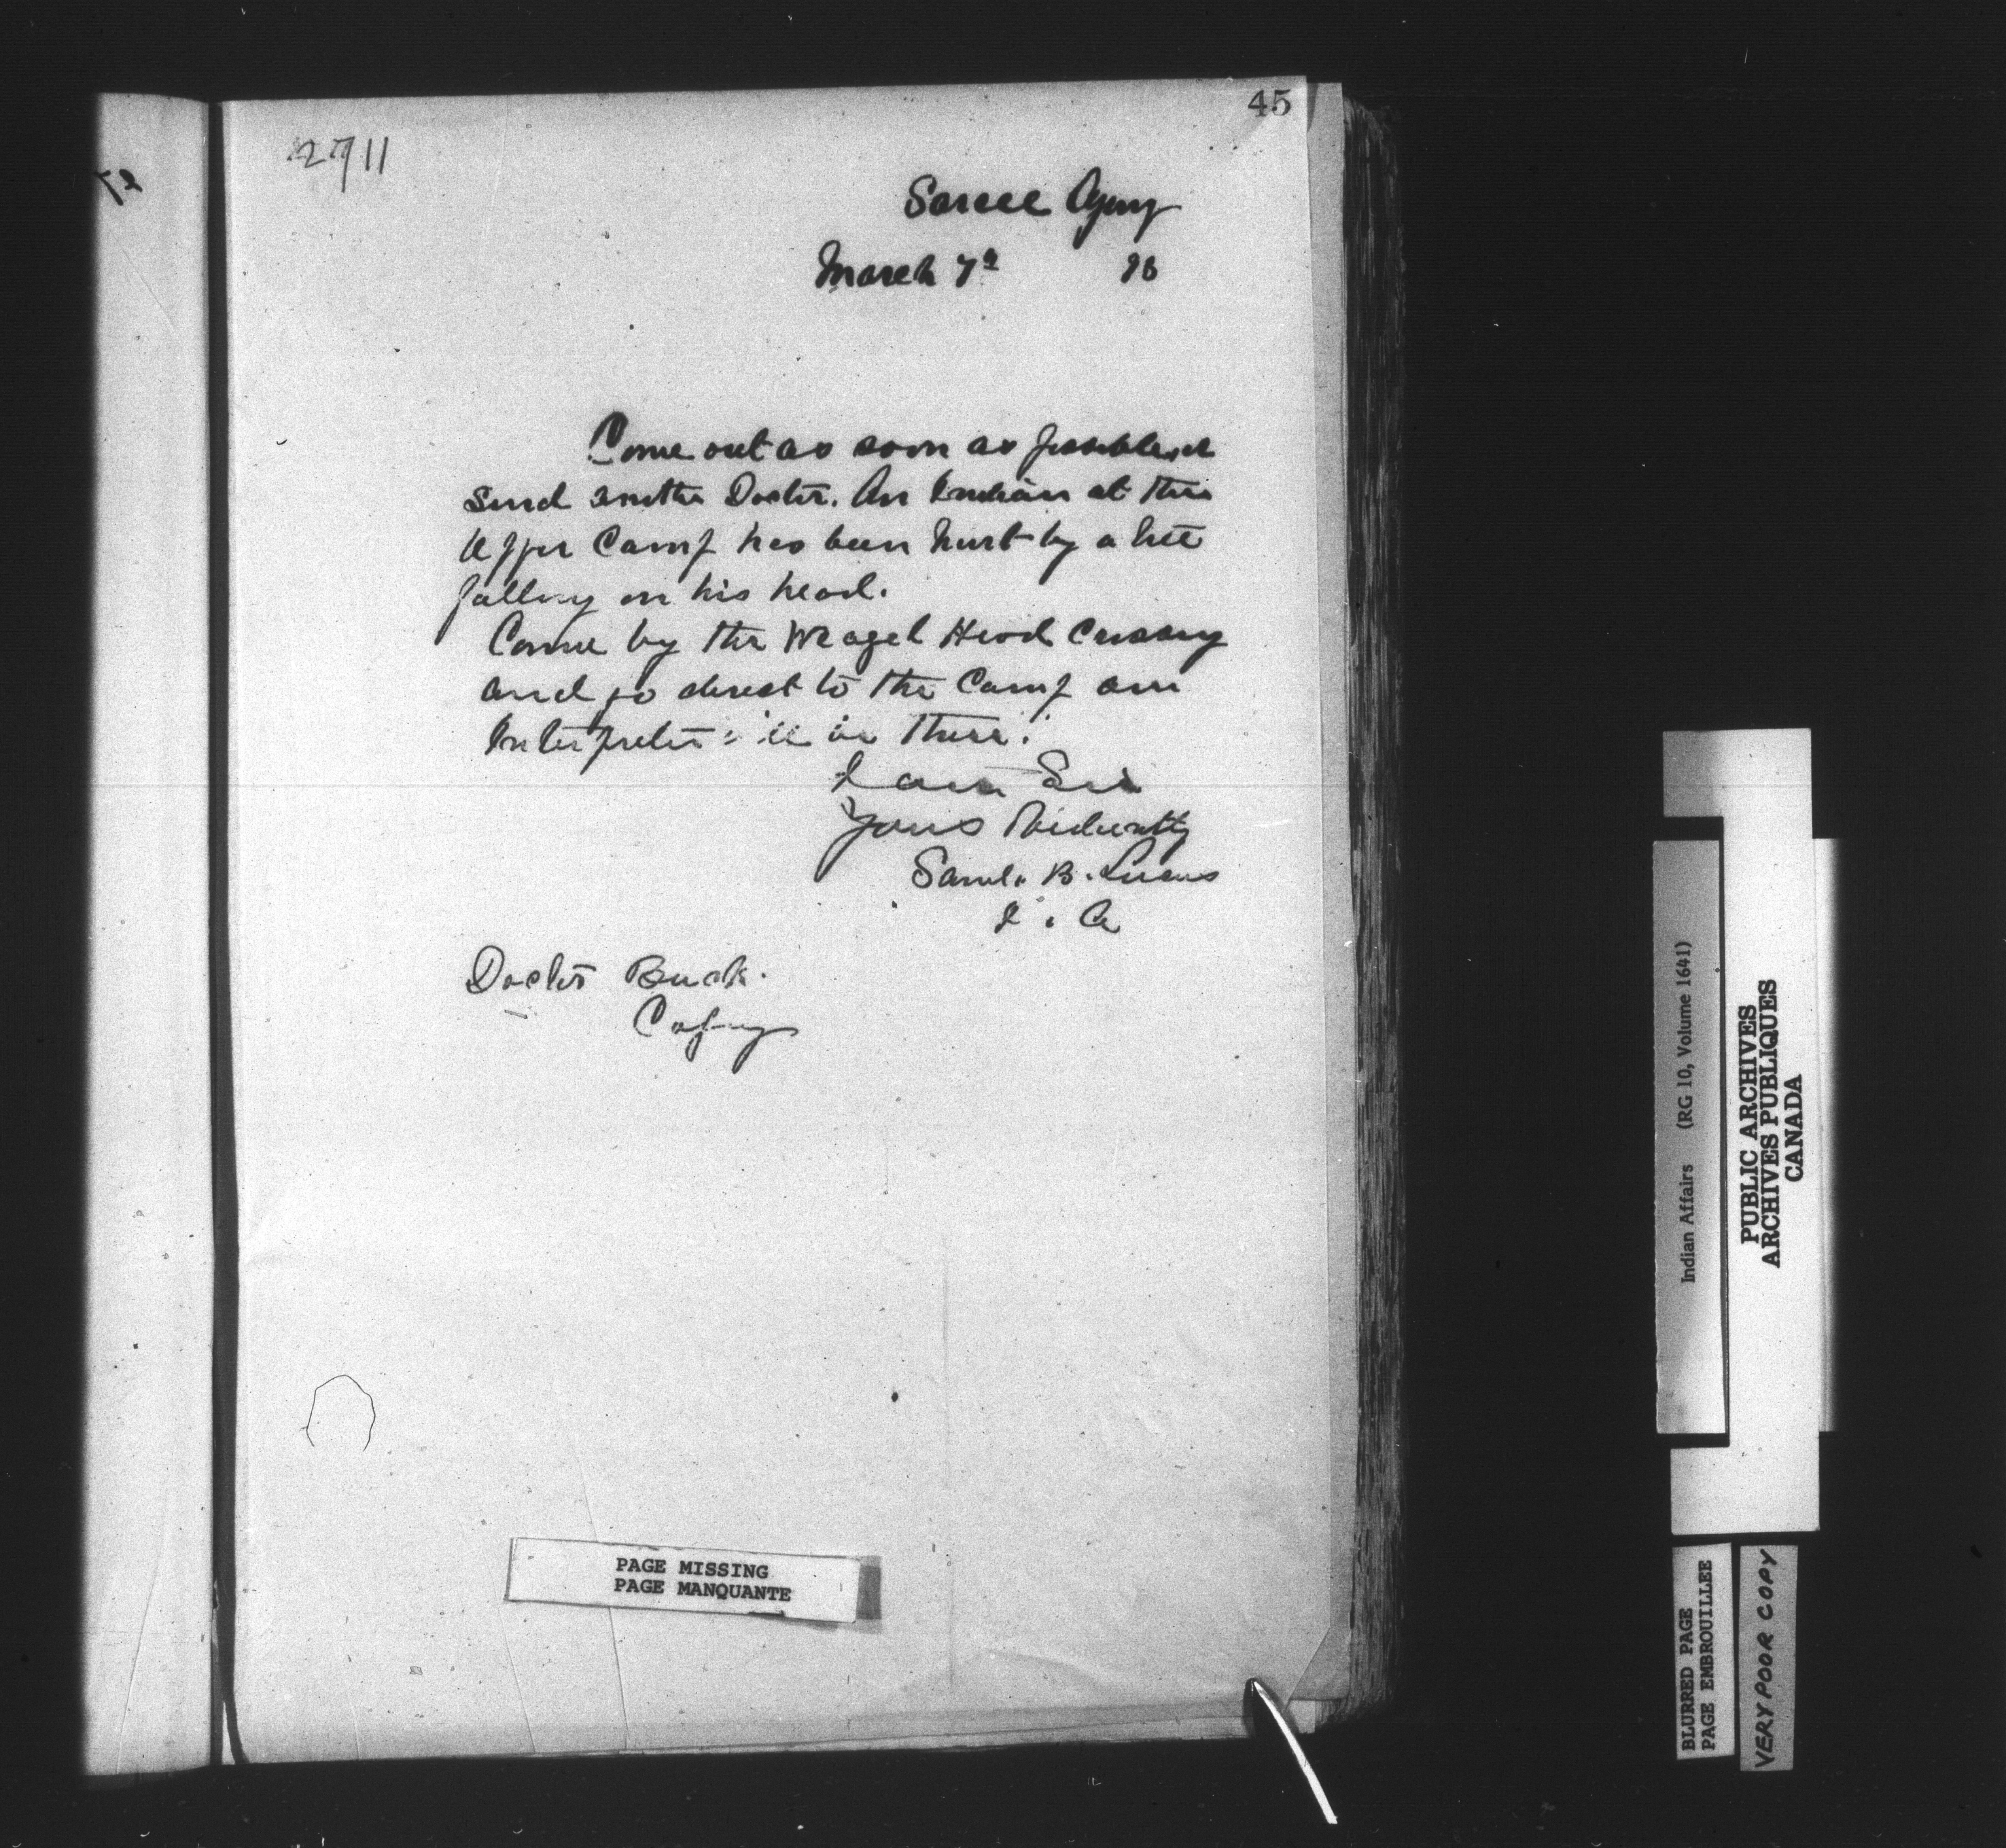 45
2711
Sarcee Agency
March 7th 98
Come out as soon as possible or
send another Doctor. An Indian at the
Upper Camp has been hurt by a tree
falling on his head.
Come by the Weasel Head Crossing
and go direct to the Camp our
Interpreter will be there.
I am Sir
Yours Obediently
Saml. B. Lucas
I. A
Doctor Buck.
Calgary
PAGE MISSING
PAGE MANQUANTE
Indian Affairs (RG 10, Volume 1641)
PUBLIC ARCHIVES
ARCHIVES PUBLIQUES
CANADA
BLURRED PAGE
PAGE EMBROUILLEE
VERY POOR COPY